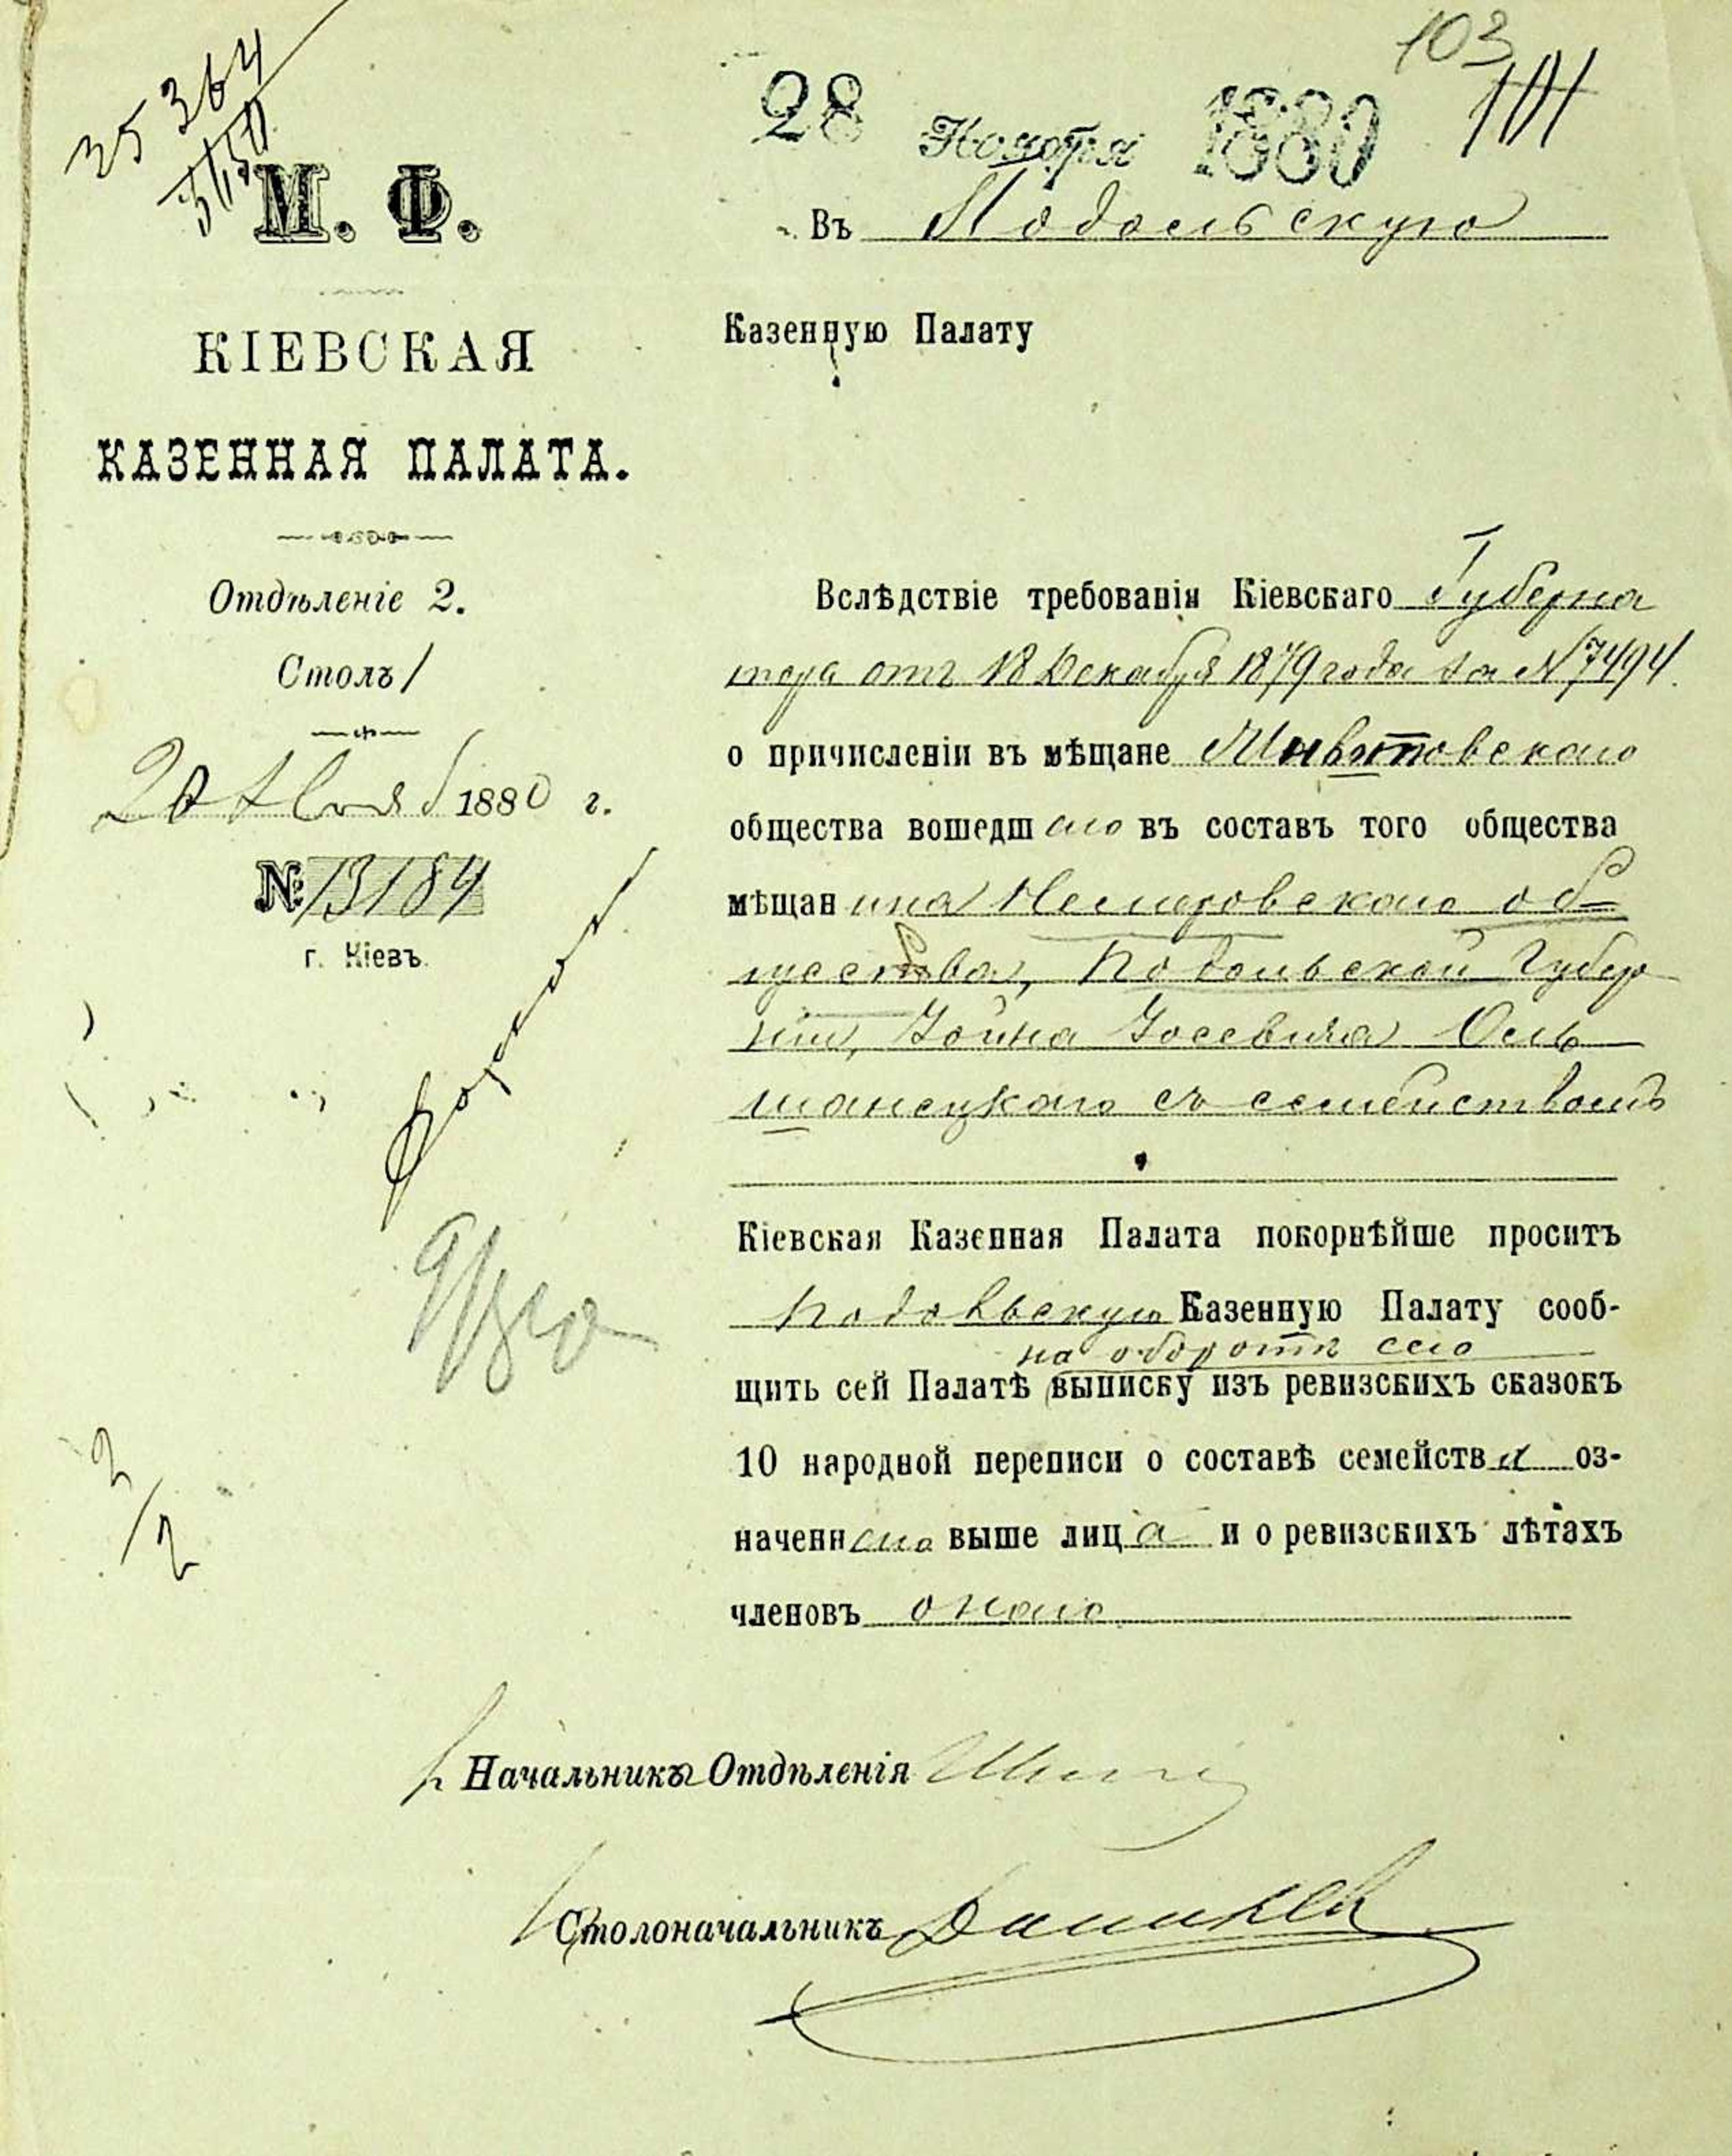 103
101
35364
28 Ноября 1880
М. Ф.
Въ Подольскую
Казенную Палату
КІЕВСКАЯ
КАЗЕННАЯ ПАЛАТА.
Отдѣленіе 2.
Столъ 1
20 Нояб 1880 г.
№ 13184
г. Кіевъ.
Вслѣдствіе требованія Кіевскаго Губерна
тора отъ 18 Декабря 1879 года за № 7494
о причисленіи въ мѣщане
общества вошедшаго въ составъ того общества
мѣщанина Немировскаго об=
щества, Подольской Губер
ніи, Іойна Іосевича Оль
шанецкаго съ семействомъ
Кіевская Казенная Палата покорнѣйше проситъ
Подольскую Казенную Палату сооб-
на оборотѣ сего
щить сей Палатѣ выписку изъ ревизскихъ сказокъ
10 народной переписи о составѣ семейства оз-
наченнаго выше лица и о ревизскихъ лѣтахъ
членовъ онаго
2/2
Начальникъ Отдѣленія
Столоначальникъ